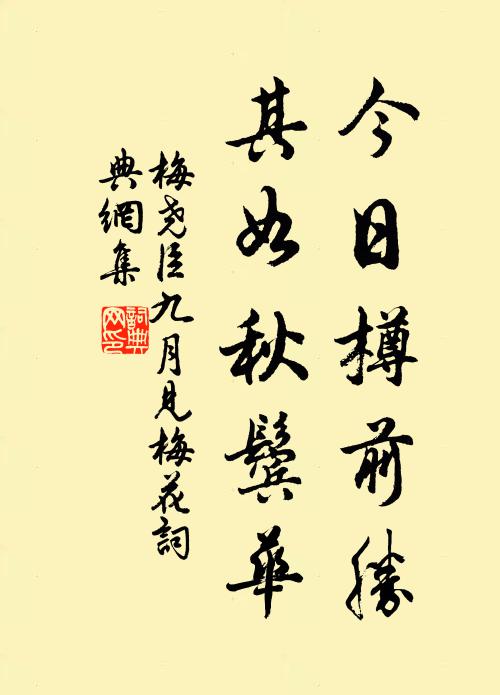 今日樽前勝
其如秋鬢華
梅堯臣九月見梅花詞
典網集
詞典網印